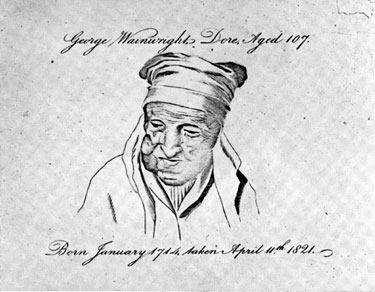 George Wainwright, Dore, Aged 107.
Born January 1714, taken April 11.th 1821.